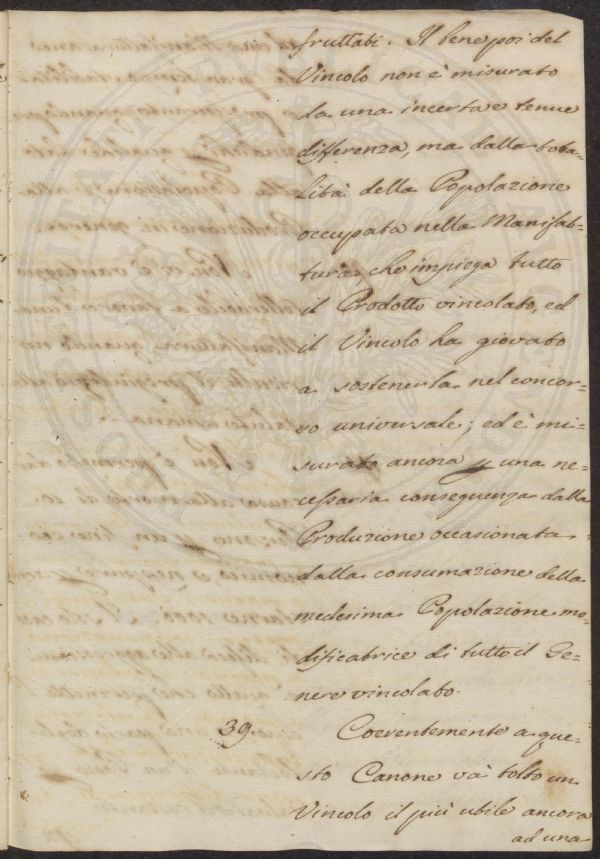 fruttati. Il bene poi del
Vincolo non è misurato
da una incerta e tenue
differenza, ma dalla tota=
lità della Popolazione
occupata nella Manifat=
tura che impiega tutto
il Prodotto vincolato, ed
il Vincolo ha giovato
a sostenerla nel concor=
so universale; ed è mi=
surato ancora p una ne=
cessaria conseguenza dalla
Produzione occasionata
dalla consumazione della
medesima Popolazione mo=
dificatrice di tutto il Ge=
nere vincolato.
39. Coerentemente a que=
sto Canone và tolto un
Vincolo il più utile ancora
ad una